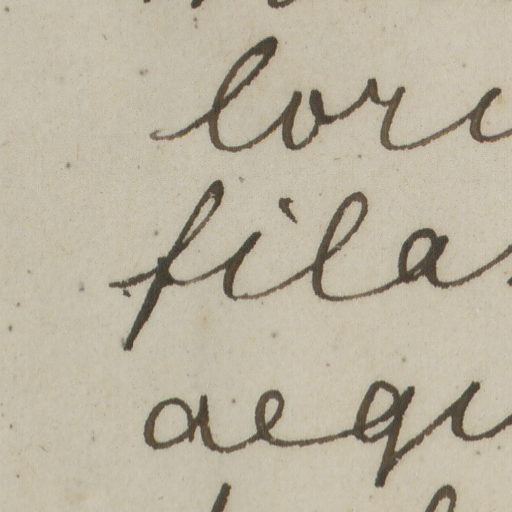 lori
fila
aequ